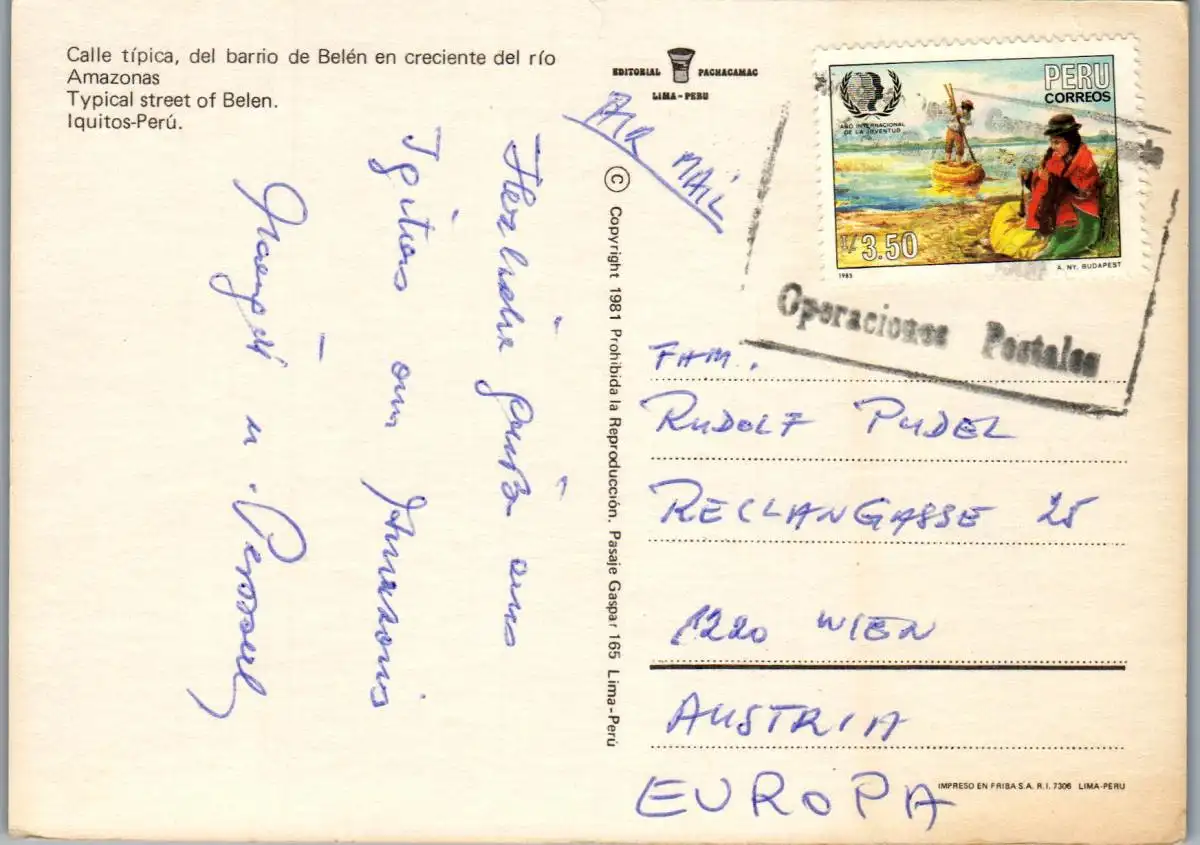 Calle típica, del barrio de Belén en creciente del río
Amazonas
Typical street of Belen.
Iquitos-Perú.
EDITORIAL PACHACAMAC
LIMA-PERU
AIR MAIL
PERU
CORREOS
AÑO INTERNACIONAL
DE LA JUVENTUD
I/.3.50
1985
A. NY. BUDAPEST
Operaciones Postales
Herzliche Grüße aus
Iquitos am Amazonas
u.
© Copyright 1981 Prohibida la Reproducción. Pasaje Gaspar 165 Lima-Perú
FAM.
RUDOLF PUDEL
RECLANGASSE 25
1220 WIEN
AUSTRIA
EUROPA
IMPRESO EN FRIBA S.A. R.I. 7306 LIMA-PERU